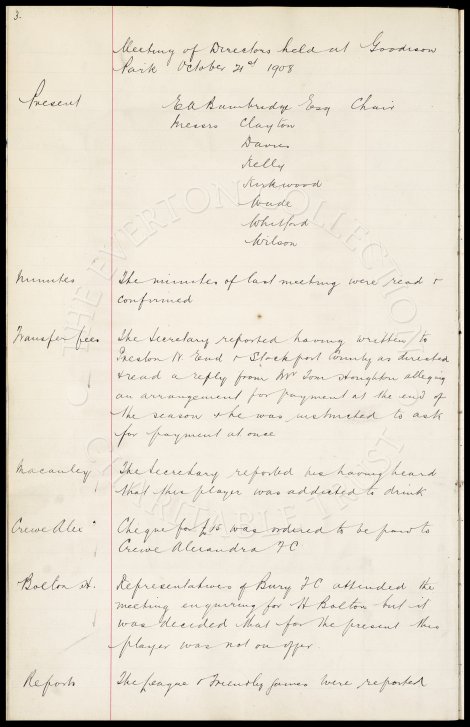 3.
Meeting of Directors held at Goodison
Park October 21st 1908
Present EA Bainbridge Esq Chair
Messrs Clayton
Davies
Kelly
Kirkwood
Wade
Whitford
Wilson
Minutes The minutes of last meeting were read &
confirmed
Transfer fees The Secretary reported having written to
Preston N. End & Stockport County as directed
& read a reply from Mr Tom Houghton alleging
an arrangement for payment at the end of
the season & he was instructed to ask
for payment at once
Macauley The Secretary reported his having heard
that this player was addicted to drink
Crewe Alex Cheque for £15 was ordered to be paid to
Crewe Alexandra FC
Bolton H. Representatives of Bury FC attended the
meeting enquiring for H Bolton but it
was decided that for the present this
player was not on offer.
Reports The League & Friendly games were reported
THE EVERTON COLLECTION
CHARITABLE TRUST